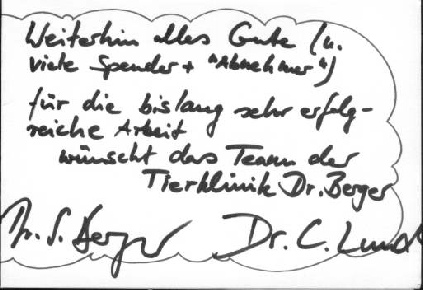 Weiterhin alles Gute (u.
viele Spender + "Abnehmer")
für die bislang sehr erfolg-
reiche Arbeit
wünscht das Team der
Tierklinik Dr. Berger
Dr. S. Berger Dr. C. Lund